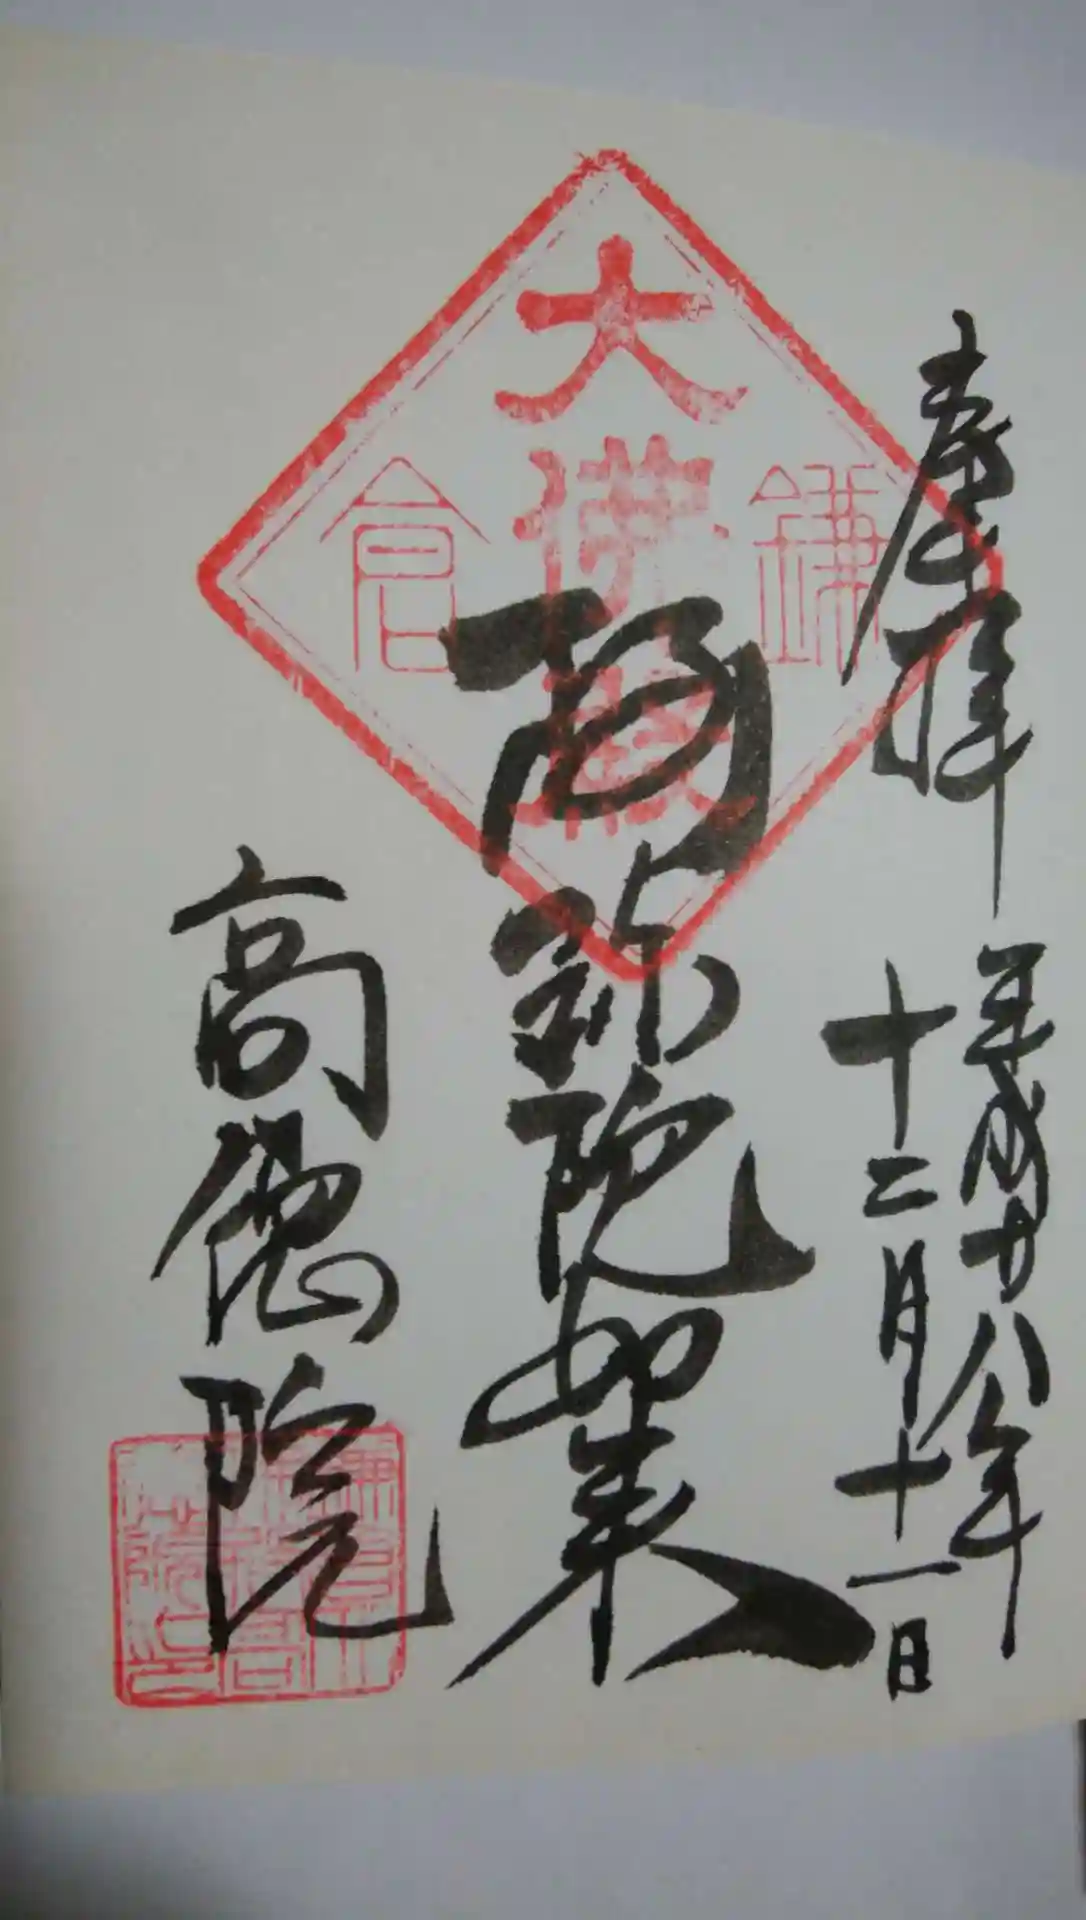 奉拝
平成廿八年
十二月十一日
阿弥陀如来
高徳院
大佛殿
鎌倉